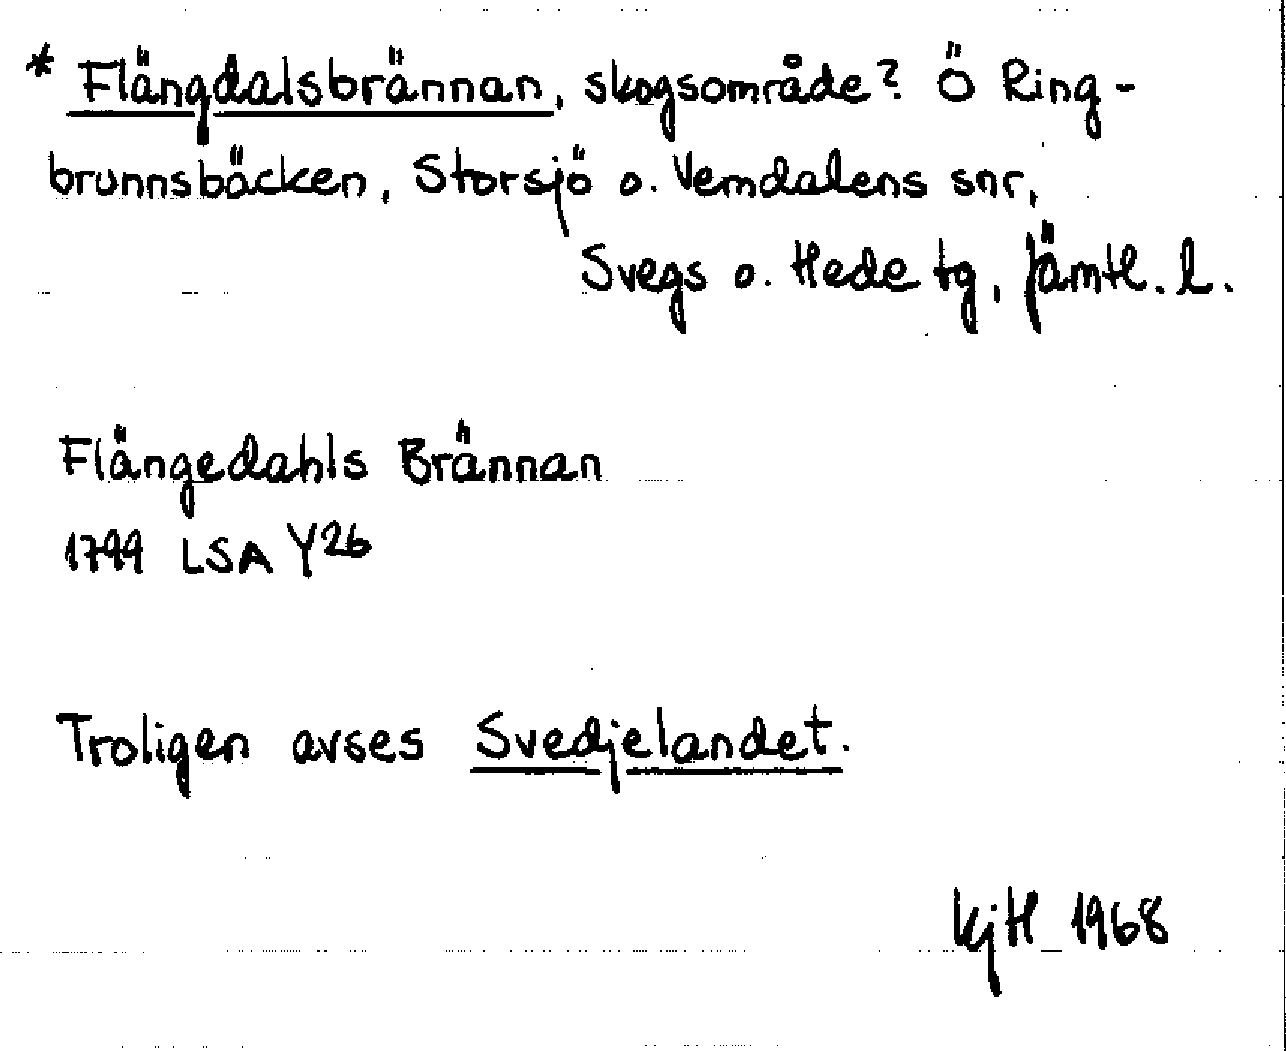 * Flängdalsbrännan, skogsområde? Ö Ring-
brunnsbäcken, Storsjö o. Vemdalens snr,
Svegs o. Hede tg, Jämtl. l.
Flängedahls Brännan
1799 LSA Y26
Troligen avses Svedjelandet.
KjH 1968